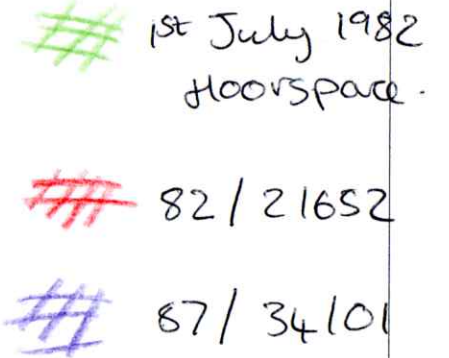 1st July 1982
floorspace.
82/21652
87/34101